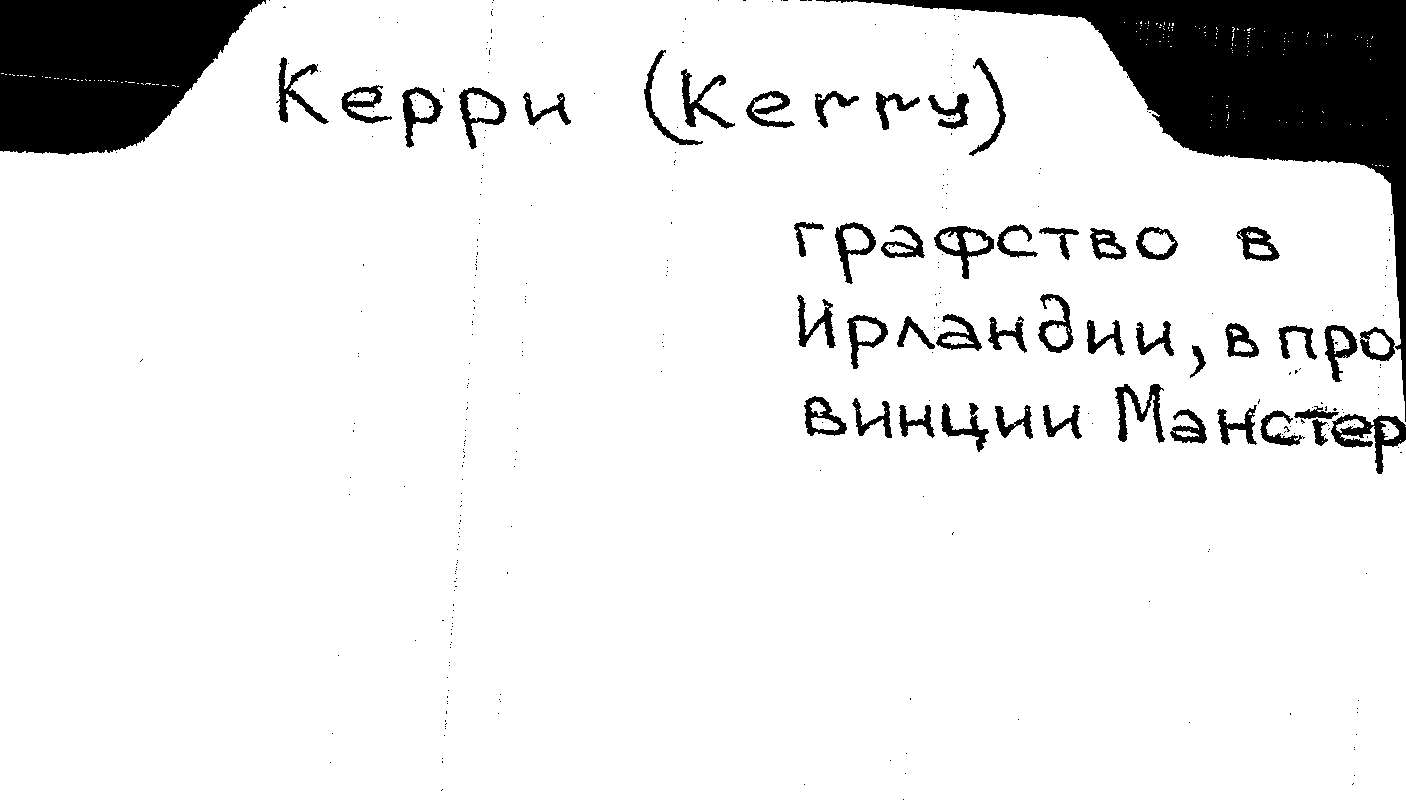 Керри (Kerry)
графство в
Ирландии, в про-
винции Манстер